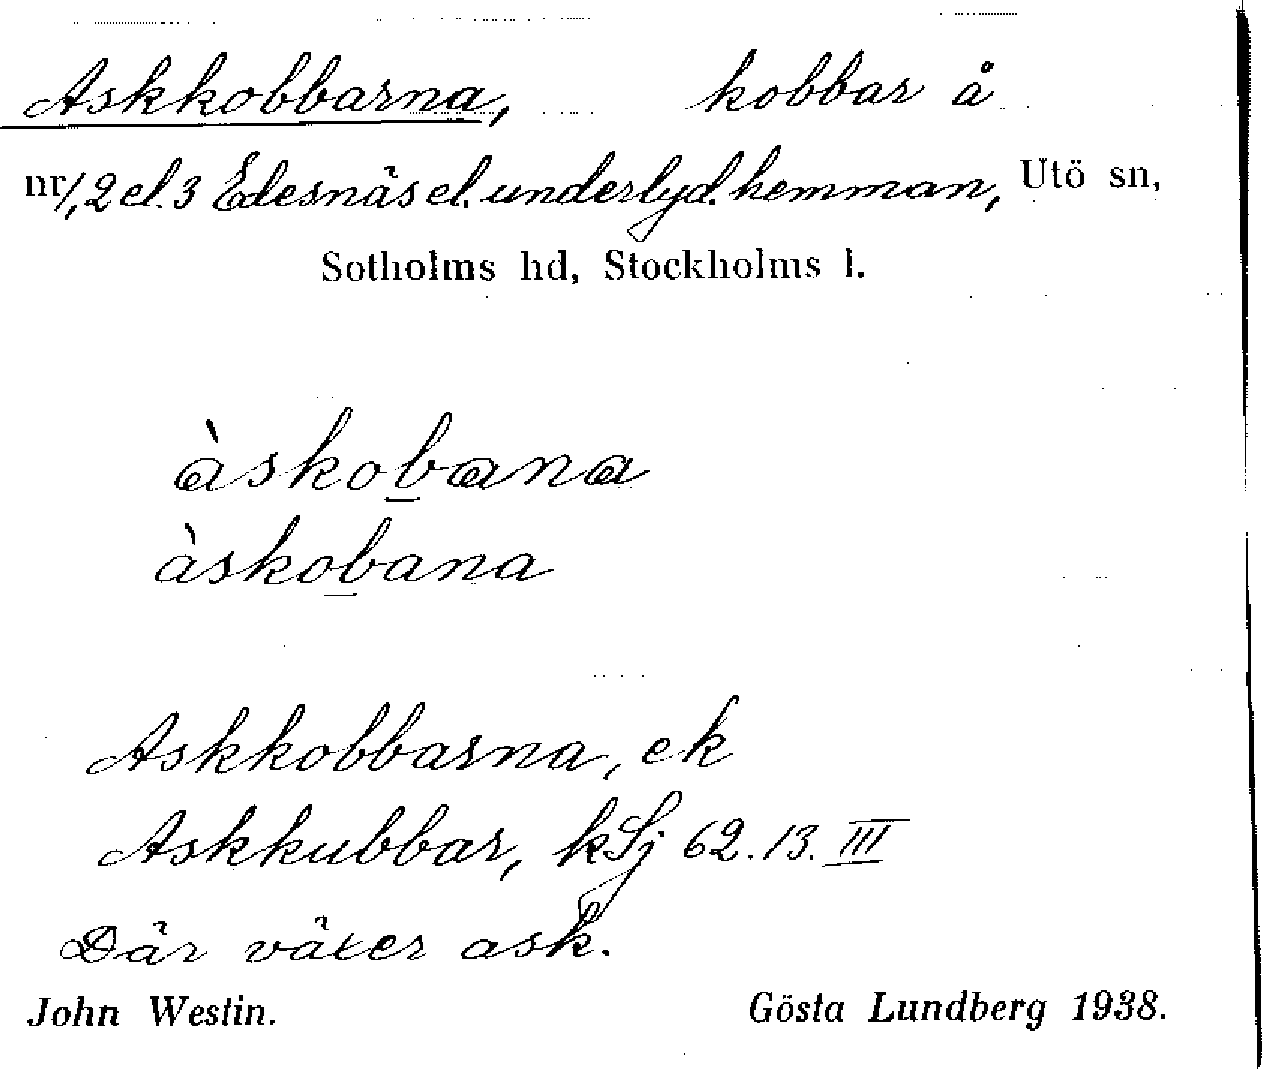 Askkobbarna, kobbar å
nr 1, 2 el. 3 Edesnäs el. underlyd. hemman, Utö sn,
Sotholms hd, Stockholms l.
àskobana
àskobana
Askkobbarna, ek
Askkubbar, kSj 62.13.III
Där växer ask.
John Westin. Gösta Lundberg 1938.